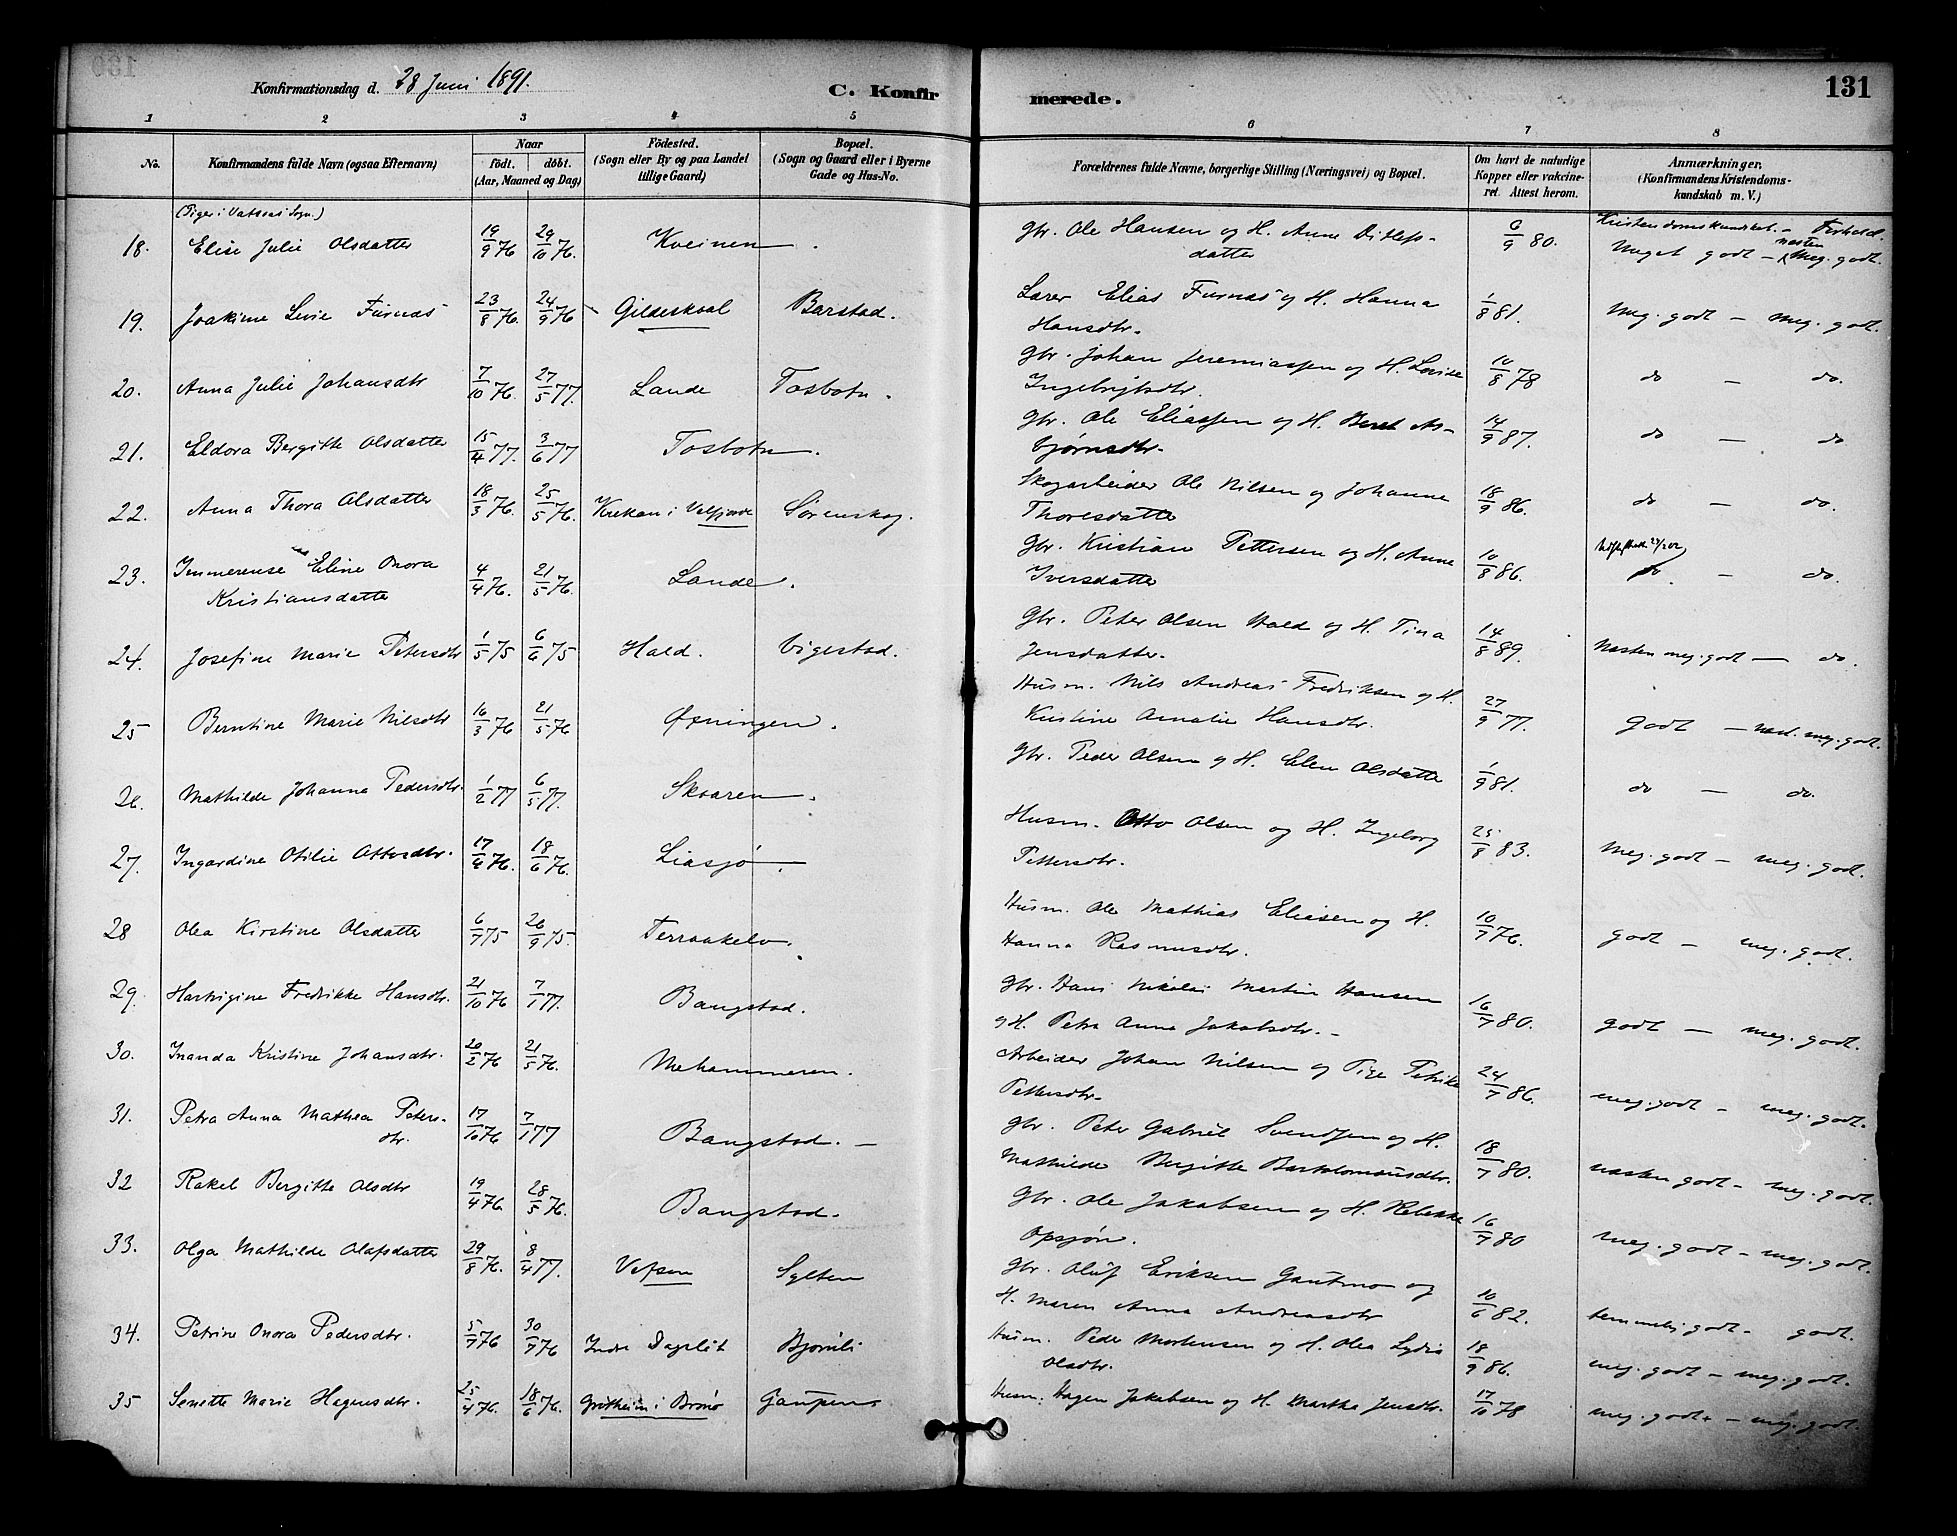 Konfirmationsdag d. 28 Juni 1891.
C. Konfirmerede.
131
1 2 3 4 5 6 7 8
No.
Konfirmandens fulde Navn (ogsaa Efternavn)
Naar
födt. döbt.
(Aar, Maaned og Dag)
Födested.
(Sogn eller By og paa Landet
tillige Gaard)
Bopæl.
(Sogn og Gaard eller i Byerne
Gade og Hus-No.
Forældrenes fulde Navne, borgerlige Stilling (Næringsvei) og Bopæl.
Om havt de naturlige
Kopper eller vakcine-
ret. Attest herom.
Anmærkninger.
(Konfirmandens Kristendoms-
kundskab m. V.)
(Piger i Vatsaas Sogn.)
Kristendomskundskab. – Forhold.
18. Elise Julie Olsdatter 19/9 76 29/10 76. Kveinen. Gbr. Ole Hansen og H. Anne Ditlefs-
datter 6/9 80. Meget godt – næsten Meg. godt.
19. Joakime Levie Furnæs 23/8 76. 24/9 76 Gildeskaal Barstad. Lærer Elias Furnæs og H. Hanna
Hansdtr. 1/8 81. Meg. godt – meg. godt.
20. Anna Julie Johansdtr 7/10 76. 27/5 77. Lande Tosbotn. Gbr. Johan Jeremiassen og H. Lovise
Ingebrigtsdtr. 10/8 78 do – do.
21. Eldora Bergitte Olsdatter 15/4 77. 3/6 77 Tosbotn. Gbr. Ole Eliassen og H. Beret As-
bjørnsdtr. 14/9 87. do – do
22. Anna Thora Olsdatter 18/3 76. 25/5 76. Krekan i Velfjord Sörenskog. Skogarbeider Ole Nilsen og Johanne
Thoresdatter 18/9 86. do – do.
23. Immerense Eline Onora
Kristiansdatter 4/4 76. 21/5 76. Lande. Gbr. Kristian Pettersen og H. Anne
Iversdatter 10/8 86. do. – do.
24. Josefine Marie Petersdtr 1/5 75 6/6 75 Hald. Vigestad. Gbr. Peter Olsen Hald og H. Tina
Jensdatter. 14/8 89. Næsten meg. godt – do.
25 Berntine Marie Nilsdtr 16/3 76 21/5 76 Øxningen. Husm. Nils Andreas Fredriksen og H.
Kristine Amalie Hansdtr. 27/9 77. Godt – næst. meg. godt.
26. Mathilde Johanna Pedersdtr. 1/2 77 6/5 77. Skaaren. Gbr. Peder Olsen og H. Elen Olsdatter 1/9 81. do – do.
27. Ingardine Otilie Ottosdtr. 17/4 76. 18/6 76. Liasjø. Husm. Otto Olsen og H. Ingeborg
Pettersdtr. 25/8 83. Meg. godt – meg. godt.
28 Olea Kirstine Olsdatter 6/7 75 26/9 75. Terraakelv. Husm. Ole Mathias Eliasen og H.
Hanna Rasmusdtr. 10/7 76. godt – meg. godt.
29. Hartvigine Fredrikke Hansdtr. 21/10 76 7/1 77. Bangstad. Gbr. Hans Nikolai Martin Hansen
og H. Petra Anna Jakobsdtr. – 16/7 80. godt – meg. godt.
30. Inanda Kristine Johansdtr. 20/2 76 21/5 76. Mehammeren. Arbeider Johan Nilsen og Pige Petrike
Pettersdtr. 24/7 86. meg. godt – meg. godt.
31. Petra Anna Mathea Peters-
dtr. 17/10 76 7/1 77 Bangstad. – Gbr. Peter Gabriel Svendsen og H.
Mathilde Bergitte Bartolomæusdtr. 18/7 80. næsten godt – meg. godt.
32 Rakel Bergitte Olsdtr 19/4 76. 28/5 76. Bangstad. Gbr. Ole Jakobsen og H. Rebekke
Opsjøn. 16/7 80 meg. godt – meg. godt.
33. Olga Mathilde Olafsdatter 29/8 76. 8/4 77. Vefsen Sylten Gbr. Oluf Eriksen Gautmo og
H. Maren Anna Andreasdtr 10/6 82. temmelig godt – godt.
34. Petrine Onora Pedersdtr. 5/7 76 30/7 76 Indre Dagslåt Bjørnli Husm. Peder Mortensen og H. Olea Lydia
Olsdtr. 18/9 86. meg. godt – meg. godt.
35 Senette Marie Hagensdtr. 25/4 76. 18/6 76. Grötheim i Brönö Gaupen Husm. Hagen Jakobsen og H. Martha Jensdtr. 17/10 78 meg. godt – meg. godt.